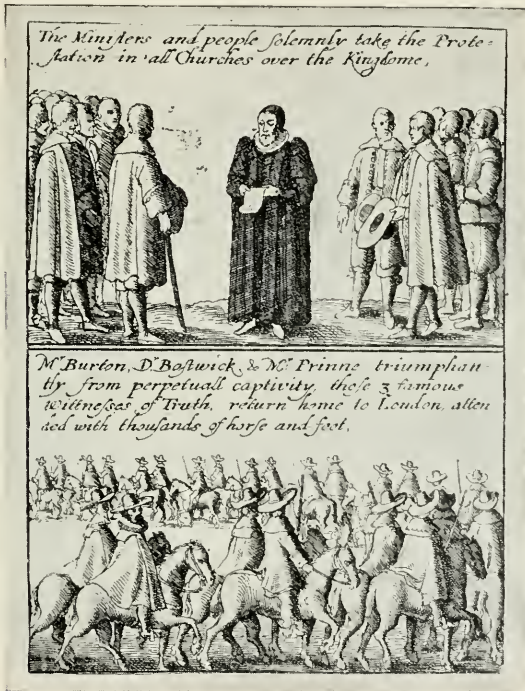 The Miniſters and people ſolemnly take the Prote-
ſtation in all Churches over the Kingdome,
Mr Burton, Dr Baſtwick & Mr Prinne triumphan-
tly from perpetuall captivity, theſe 3 famous
Wittneſses of Truth, return home to London, atten
ded with thouſands of horſe and foot,